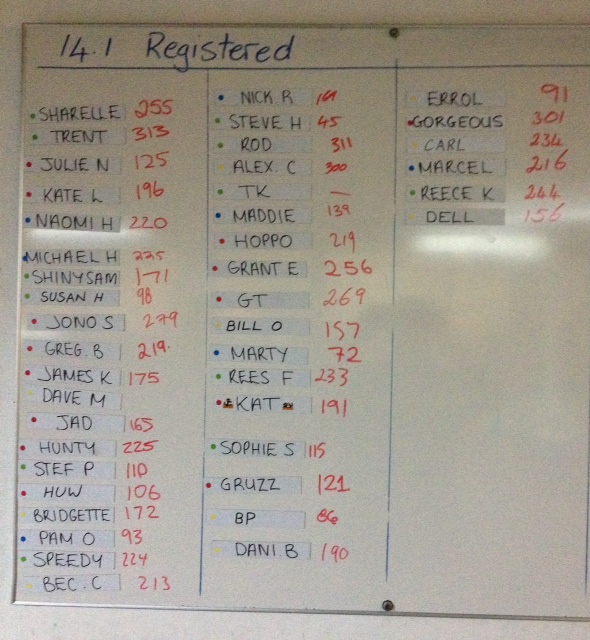 14.1 Registered
SHARELLE 255
TRENT 313
JULIE N 125
KATE L 196
NAOMI H 220
MICHAEL H 225
SHINYSAM 171
SUSAN H 98
JONO S 279
GREG. B 219.
JAMES K 175
DAVE M
JAD 165
HUNTY 225
STEF P 110
HUW 106
BRIDGETTE 172
PAM O 93
SPEEDY 224
BEC. C 213
NICK R
STEVE H 45
ROD 311
ALEX. C 300
TK —
MADDIE 139
HOPPO 219
GRANT E 256
GT 269
BILL O 157
MARTY 72
REES F 233
KAT 191
SOPHIE S 115
GRUZZ 121
BP 86
DANI. B 190
ERROL 91
GORGEOUS 301
CARL 234
MARCEL 216
REECE K 244
DELL 156